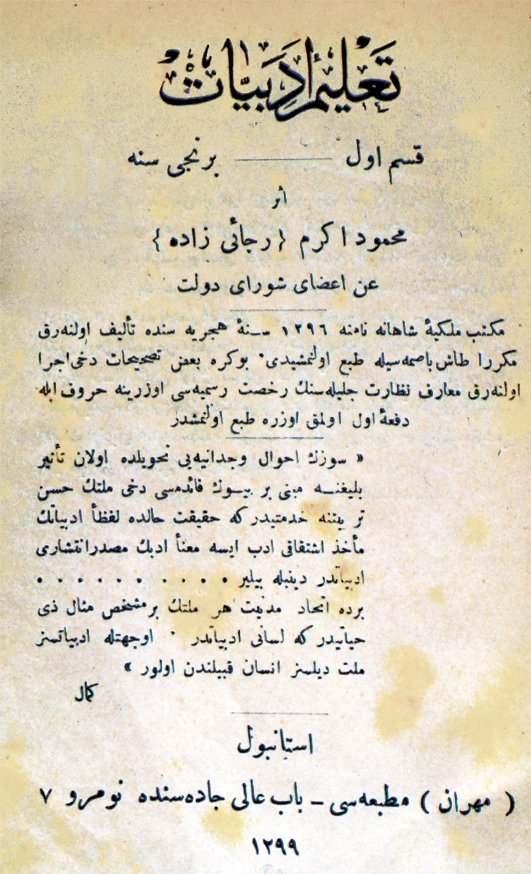 تعليم ادبيات
قسم اول — برنجی سنه
اثر
محمود اكرم { رجائی زاده }
عن اعضای شورای دولت
مكتب ملكيۀ شاهانه نامنه ١٢٩٦ سنۀ هجريه سنده تأليف اولنەرق
مكررا طاش باصمه سيله طبع اولنمشيدی . بوكره بعض تصحيحات دخی اجرا
اولنەرق معارف نظارت جليله سنك رخصت رسميه سی اوزرينه حروف ايله
دفعۀ اول اولمق اوزره طبع اولنمشدر
« سوزك احوال وجدانيه يی تحويلده اولان تأثير
بليغنه مبنی بر بيوك فائدەسی دخی ملتك حسن
تربيتنه خدمتيدر كه حقيقت حالده لفظاً ادبياتك
مأخذ اشتقاقی ادب ايسه معناً ادبك مصدر انتشاری
ادبياتدر دينيله بيلير . . . . . . . . . .
برده اتحاد مدنيت هر ملتك بر مشخص مثال ذی
حياتيدر كه لسانی ادبياتدر . اوجهتله ادبياتسز
ملت ديلسز انسان قبيلندن اولور »
كمال
استانبول
( مهران ) مطبعه سی – باب عالی جاده سنده نومرو ٧
١٢٩٩